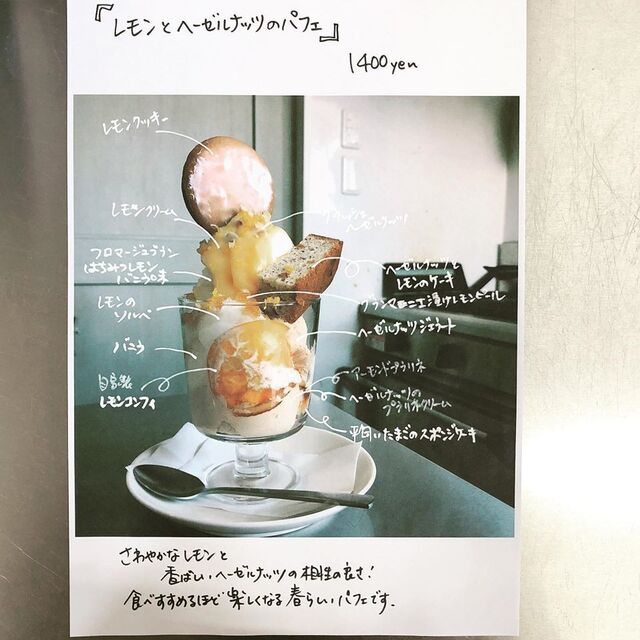 『レモンとヘーゼルナッツのパフェ』
1400yen
レモンクッキー
レモンクリーム
クラッシュ
ヘーゼルナッツ
フロマージュブラン
はちみつレモン
バニラ味
ヘーゼルナッツと
レモンのケーキ
レモンの
ソルベ
グランマニエ漬けレモンピール
ヘーゼルナッツジェラート
バニラ
アーモンドプラリネ
自家製
レモンコンフィ
ヘーゼルナッツの
プラリネクリーム
平飼いたまごのスポンジケーキ
さわやかなレモンと
香ばしいヘーゼルナッツの相性の良さ!
食べすすめるほど楽しくなる春らしいパフェです.